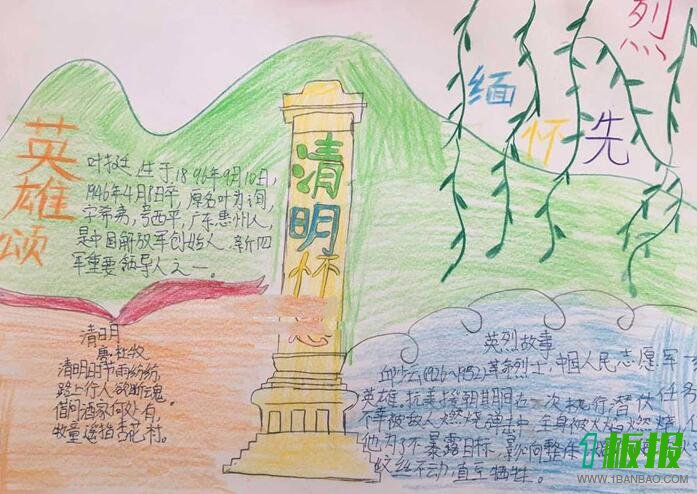 缅怀先烈
英雄颂
叶挺生于1896年9月10日,
1946年4月8日卒,原名叶为询,
字希夷,号西平,广东惠州人,
是中国解放军创始人、新四
军重要领导人之一。
清明怀思
清明
唐 杜牧
清明时节雨纷纷,
路上行人欲断魂。
借问酒家何处有,
牧童遥指杏花村。
英烈故事
邱少云(1926~1952)革命烈士,中国人民志愿军
英雄。抗美援朝期间在一次执行潜伏任务
不幸被敌人燃烧弹击中,全身被火焰燃烧,
他为了不暴露目标,影响整体
纹丝不动,直至牺牲。
1板报
WWW.1BANBAO.COM